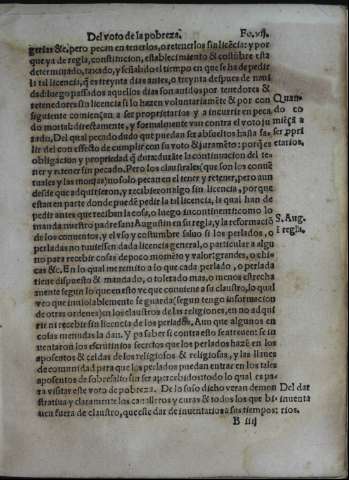 Del voto de la pobreza. Fo. vij.
gerias &c. pero pecan en tenerlos, o retenerlos sin licẽcia: y por
que ya de regla, constitucion, establecimiento & costũbre esta
determinado, taxado, y señalado el tiempo en que se ha de pedir
la tal licencia, q̃ es treynta dias antes, o treynta despues de naui
dad: luego passados aquellos dias son auidos por tenedores &
retenedores sin licencia si lo hazen voluntariamẽte & por con
siguiente comiençan a ser proprietarios y a incurrir en peca
do mortal: directamente, y formalmente van contra el voto ju
rado. Del qual pecado dudo que puedan ser absueltos hasta sa
lir del con effecto de cumplir con su voto & juramẽto: porq̃ es
obligacion y propriedad q̃ dura: durãte la continuacion del te
ner y retener sin pecado. Pero los claustrales (que son los conuẽ
tuales y las monjas) no solo pecan en el tener y retener, pero aun
desde que adquirieron, y recibieron algo sin licencia, porque
estan en parte donde puedẽ pedir la tal licencia, la qual han de
pedir antes que reciban la cosa, o luego incontinente: como lo
manda nuestro padre sant Augustin en su regla, y la reformaciõ
de los conuentos, y el vso y costumbre saluo si los perlados, o
perladas no tuuiessen dada licencia general, o particular a algu
no para recebir cosas de poco momẽto y valor: grandes, o chi
cas &c. En lo qual me remito a lo que cada perlado, o perlada
tiene dispuesto & mandado, o tolerado mas, o menos estrecha
mente segun lo que en esto ve que conuiene a su claustro, lo qual
veo que inuiolablemente se guarda (segun tengo informacion
de otras ordenes) en los claustros de las religiones, en no adqui
rir ni recebir sin licencia de los perlados. Aun que algunos en
cosas menudas la dan. Y pa saber si contra esto se atreuen: se in
uentaron los escrutinios secretos que los perlados hazẽ en los
aposentos & celdas de los religiosos & religiosas, y las llaues
de comunidad para que los perlados puedan entrar en los tales
aposentos de sobresalto sin ser apercebidos: todo lo qual es pa
ra visitar este voto de pobreza. De lo suso dicho veran demon
stratiua y claramente los caualleros y curas & todos los que bi
uen fuera de claustro, que esse dar de inuentarios a sus tiempos:
B iiij
Quan-
do co
miẽça a
ser ppri
etarios.
S. Aug.
ĩ regla.
Del dar
inuenta
rios.